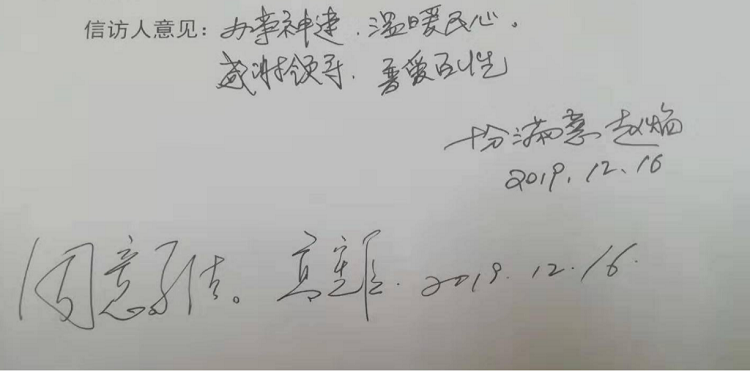 信访人意见：办事神速．温暖民心．
感谢领导．善爱百姓
十分满意 赵焰
2019.12.16
同意 2019.12.16.